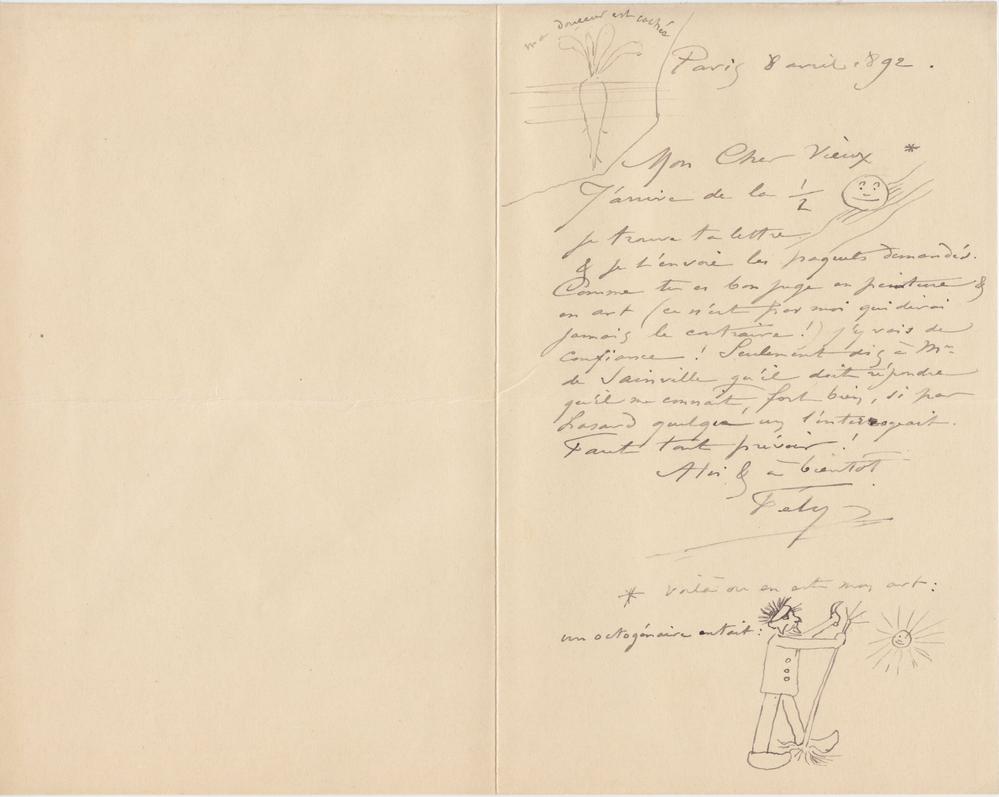 ma douceur est cachée
Paris 8 avril 1892.
Mon Cher Vieux *
J'arrive de la 1/2
je trouve ta lettre
& je t'envoie les paquets demandés.
Comme tu es bon juge en peinture &
en art (ce n'est pas moi qui dirai
jamais le contraire!) j'y vais de
confiance! Seulement dis à Mr
de Sainville qu'il doit répondre
qu'il me connaît, fort bien, si par
hasard quelqu'un l'interrogeait.
Faut tout prévoir!
A toi & à bientôt
Fély
* Voilà où en est mon art:
un octogénaire entait: